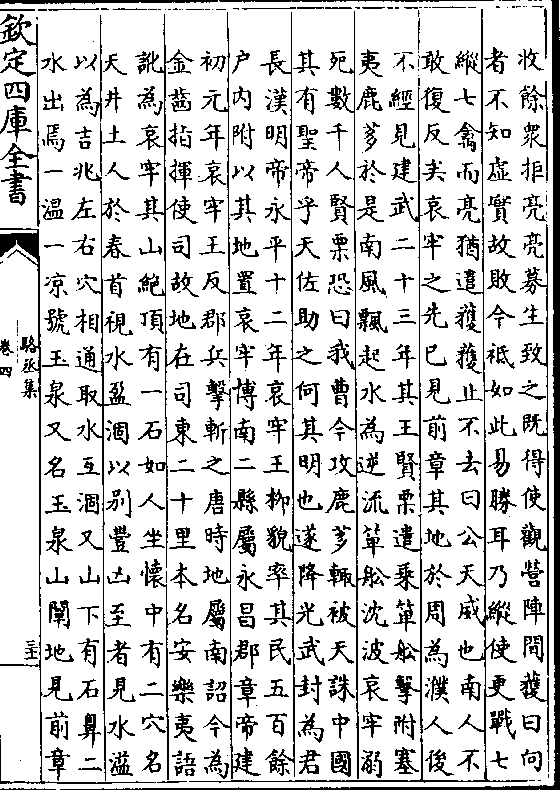 收餘衆拒亮亮募生致之既得使觀營陣問獲曰向
者不知虚實故敗今祗如此易勝耳乃縱使更戰七
縱七禽而亮猶遣獲獲止不去曰公天威也南人不
敢復反矣哀牢之先已見前章其地於周為濮人後
不經見建武二十三年其王賢栗遣乘箄船擊附塞
夷鹿茤於是南風飄起水為逆流箄船沈波哀牢溺
死數千人賢栗恐曰我曹今攻鹿茤輙被天誅中國
其有聖帝乎天佑助之何其明也遂降光武封為君
長漢明帝永平十二年哀牢王柳貌率其民五百餘
户内附以其地置哀牢博南二縣屬永昌郡章帝建
初元年哀牢王反郡兵擊斬之唐時地屬南詔今為
金齒指揮使司故地在司東二十里本名安樂夷語
訛為哀牢其山絶頂有一石如人坐懷中有二穴名
天井土人於春首視水盈涸以别豐凶至者見水溢
以為吉兆左右穴相通取水互涸又山下有石鼻二
水出焉一温一凉號玉泉又名玉泉山闌地見前章
欽定四庫全書
駱丞集
卷四
三十一